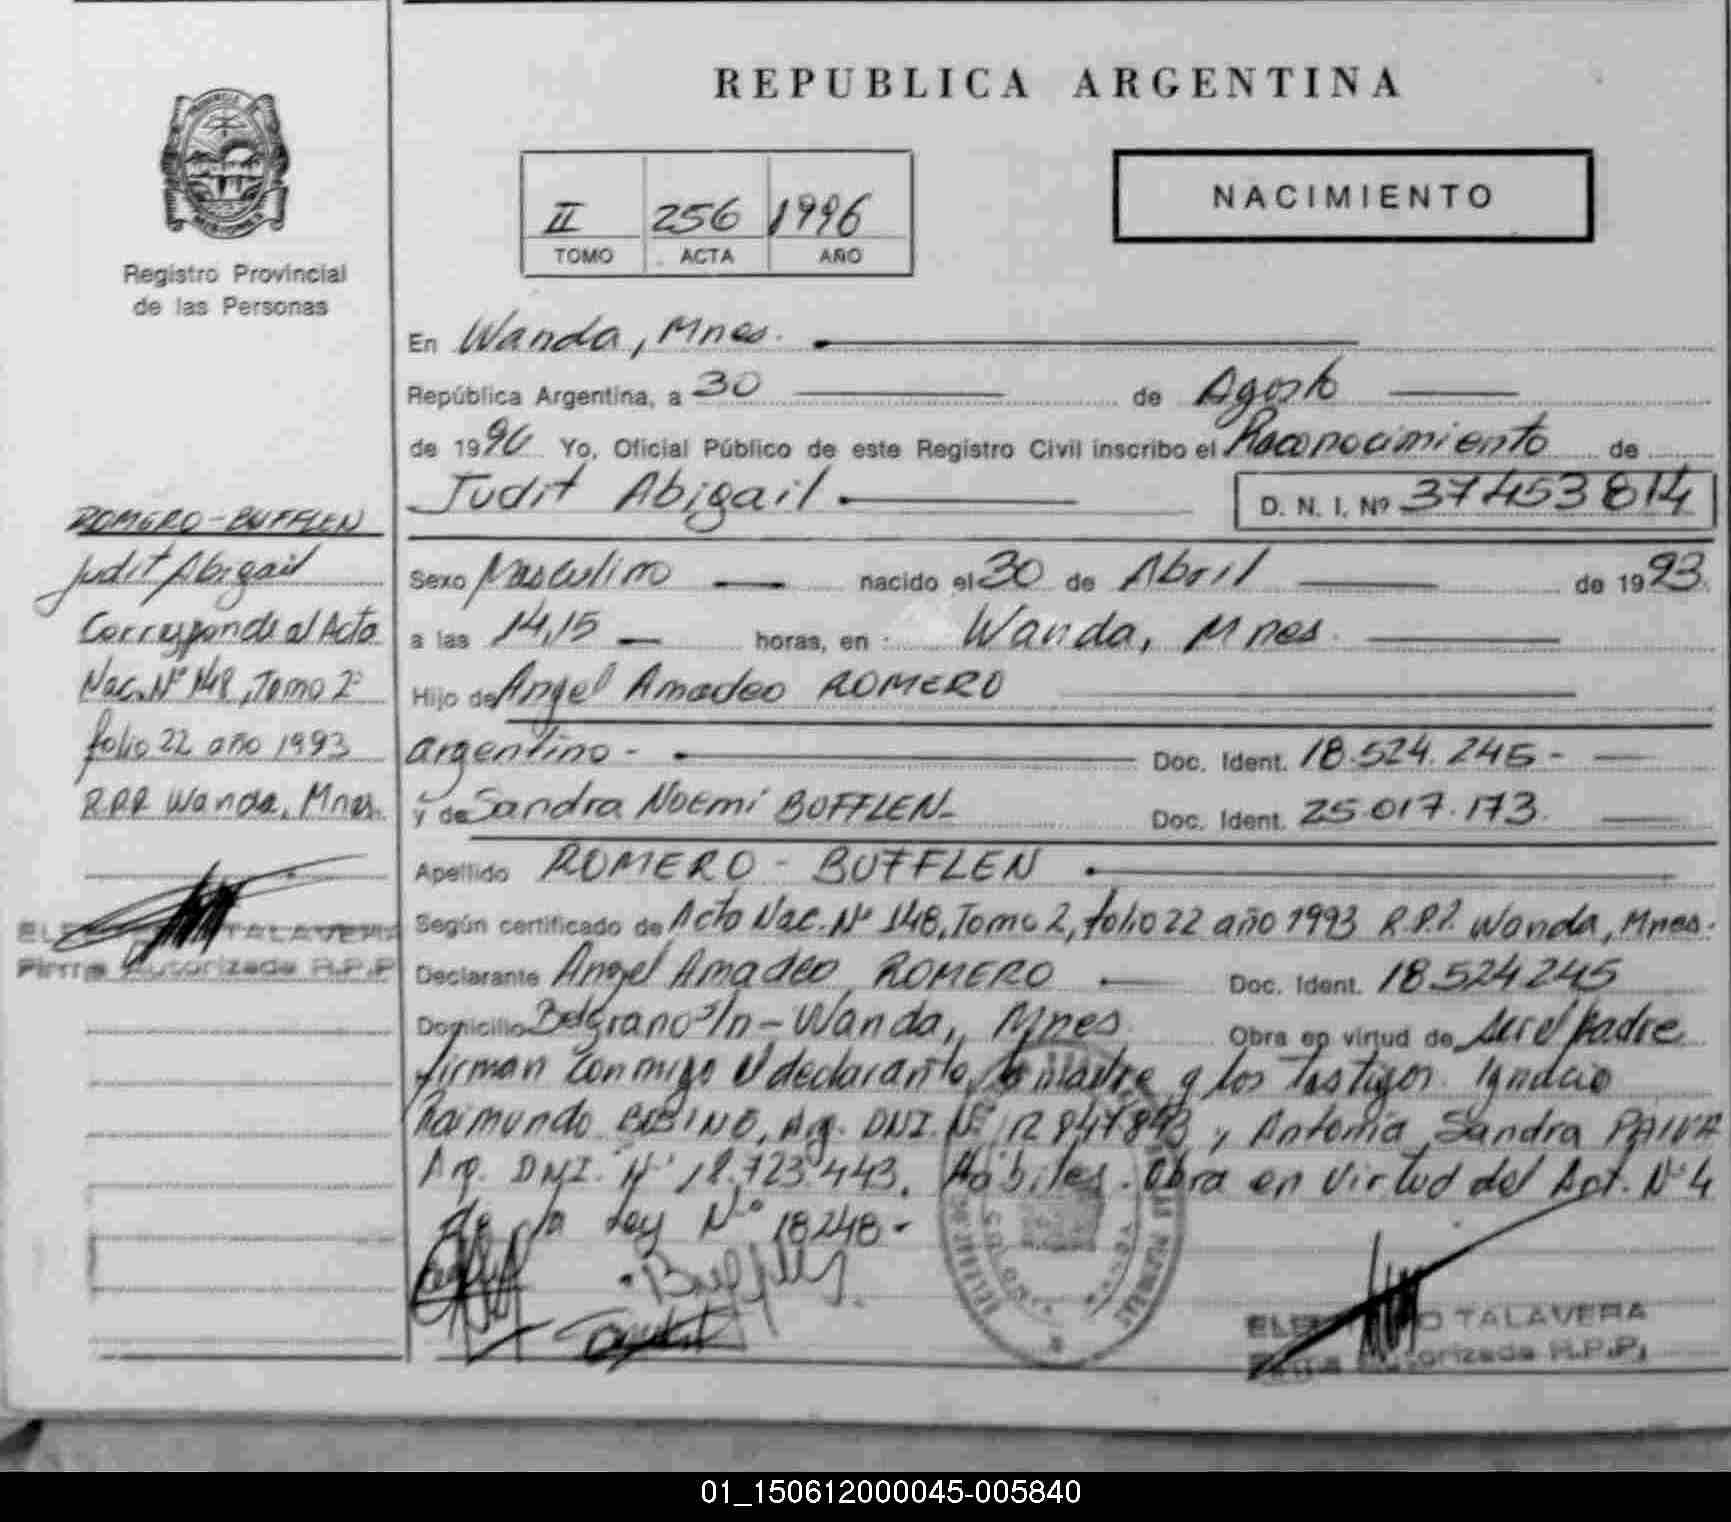 REPUBLICA ARGENTINA
NACIMIENTO
II 256 1996
TOMO ACTA AÑO
Registro Provincial
de las Personas
ROMERO-BUFFLEN
Judit Abigail
Corresponde al Acta
Nac. Nº 148, Tomo 2º
folio 22 año 1993
R.P.P. Wanda, Mnes.
TALAVERA
Firma Autorizada R.P.P
En Wanda, Mnes.
República Argentina, a 30 de Agosto
de 1996 Yo, Oficial Público de este Registro Civil inscribo el Reconocimiento de
Judit Abigail D. N. I. Nº 37453814
Sexo Masculino nacido el 30 de Abril de 1993.
a las 14,15 horas, en : Wanda, Mnes.
Hijo de Angel Amadeo ROMERO
argentino - Doc. Ident. 18.524.245-
y de Sandra Noemi BUFFLEN- Doc. Ident. 25.017.173.
Apellido ROMERO - BUFFLEN
Según certificado de Acta Nac. Nº 148, Tomo 2, folio 22 año 1993 R.P.P. Wanda, Mnes.
Declarante Angel Amadeo ROMERO Doc. Ident. 18.524245
Domicilio Belgrano S/n - Wanda, Mnes Obra en virtud de ser el padre
firman conmigo el declarante, la madre y los testigos. Ignacio
Raimundo Arg. DNI. Nº y Antonia Sandra PAIVA
Arg. DNI. Nº 18.723.443. Hábiles. Obra en virtud del Art. Nº 4
de la Ley Nº 18248-
TALAVERA
Autorizada R.P.P.
01_150612000045-005840